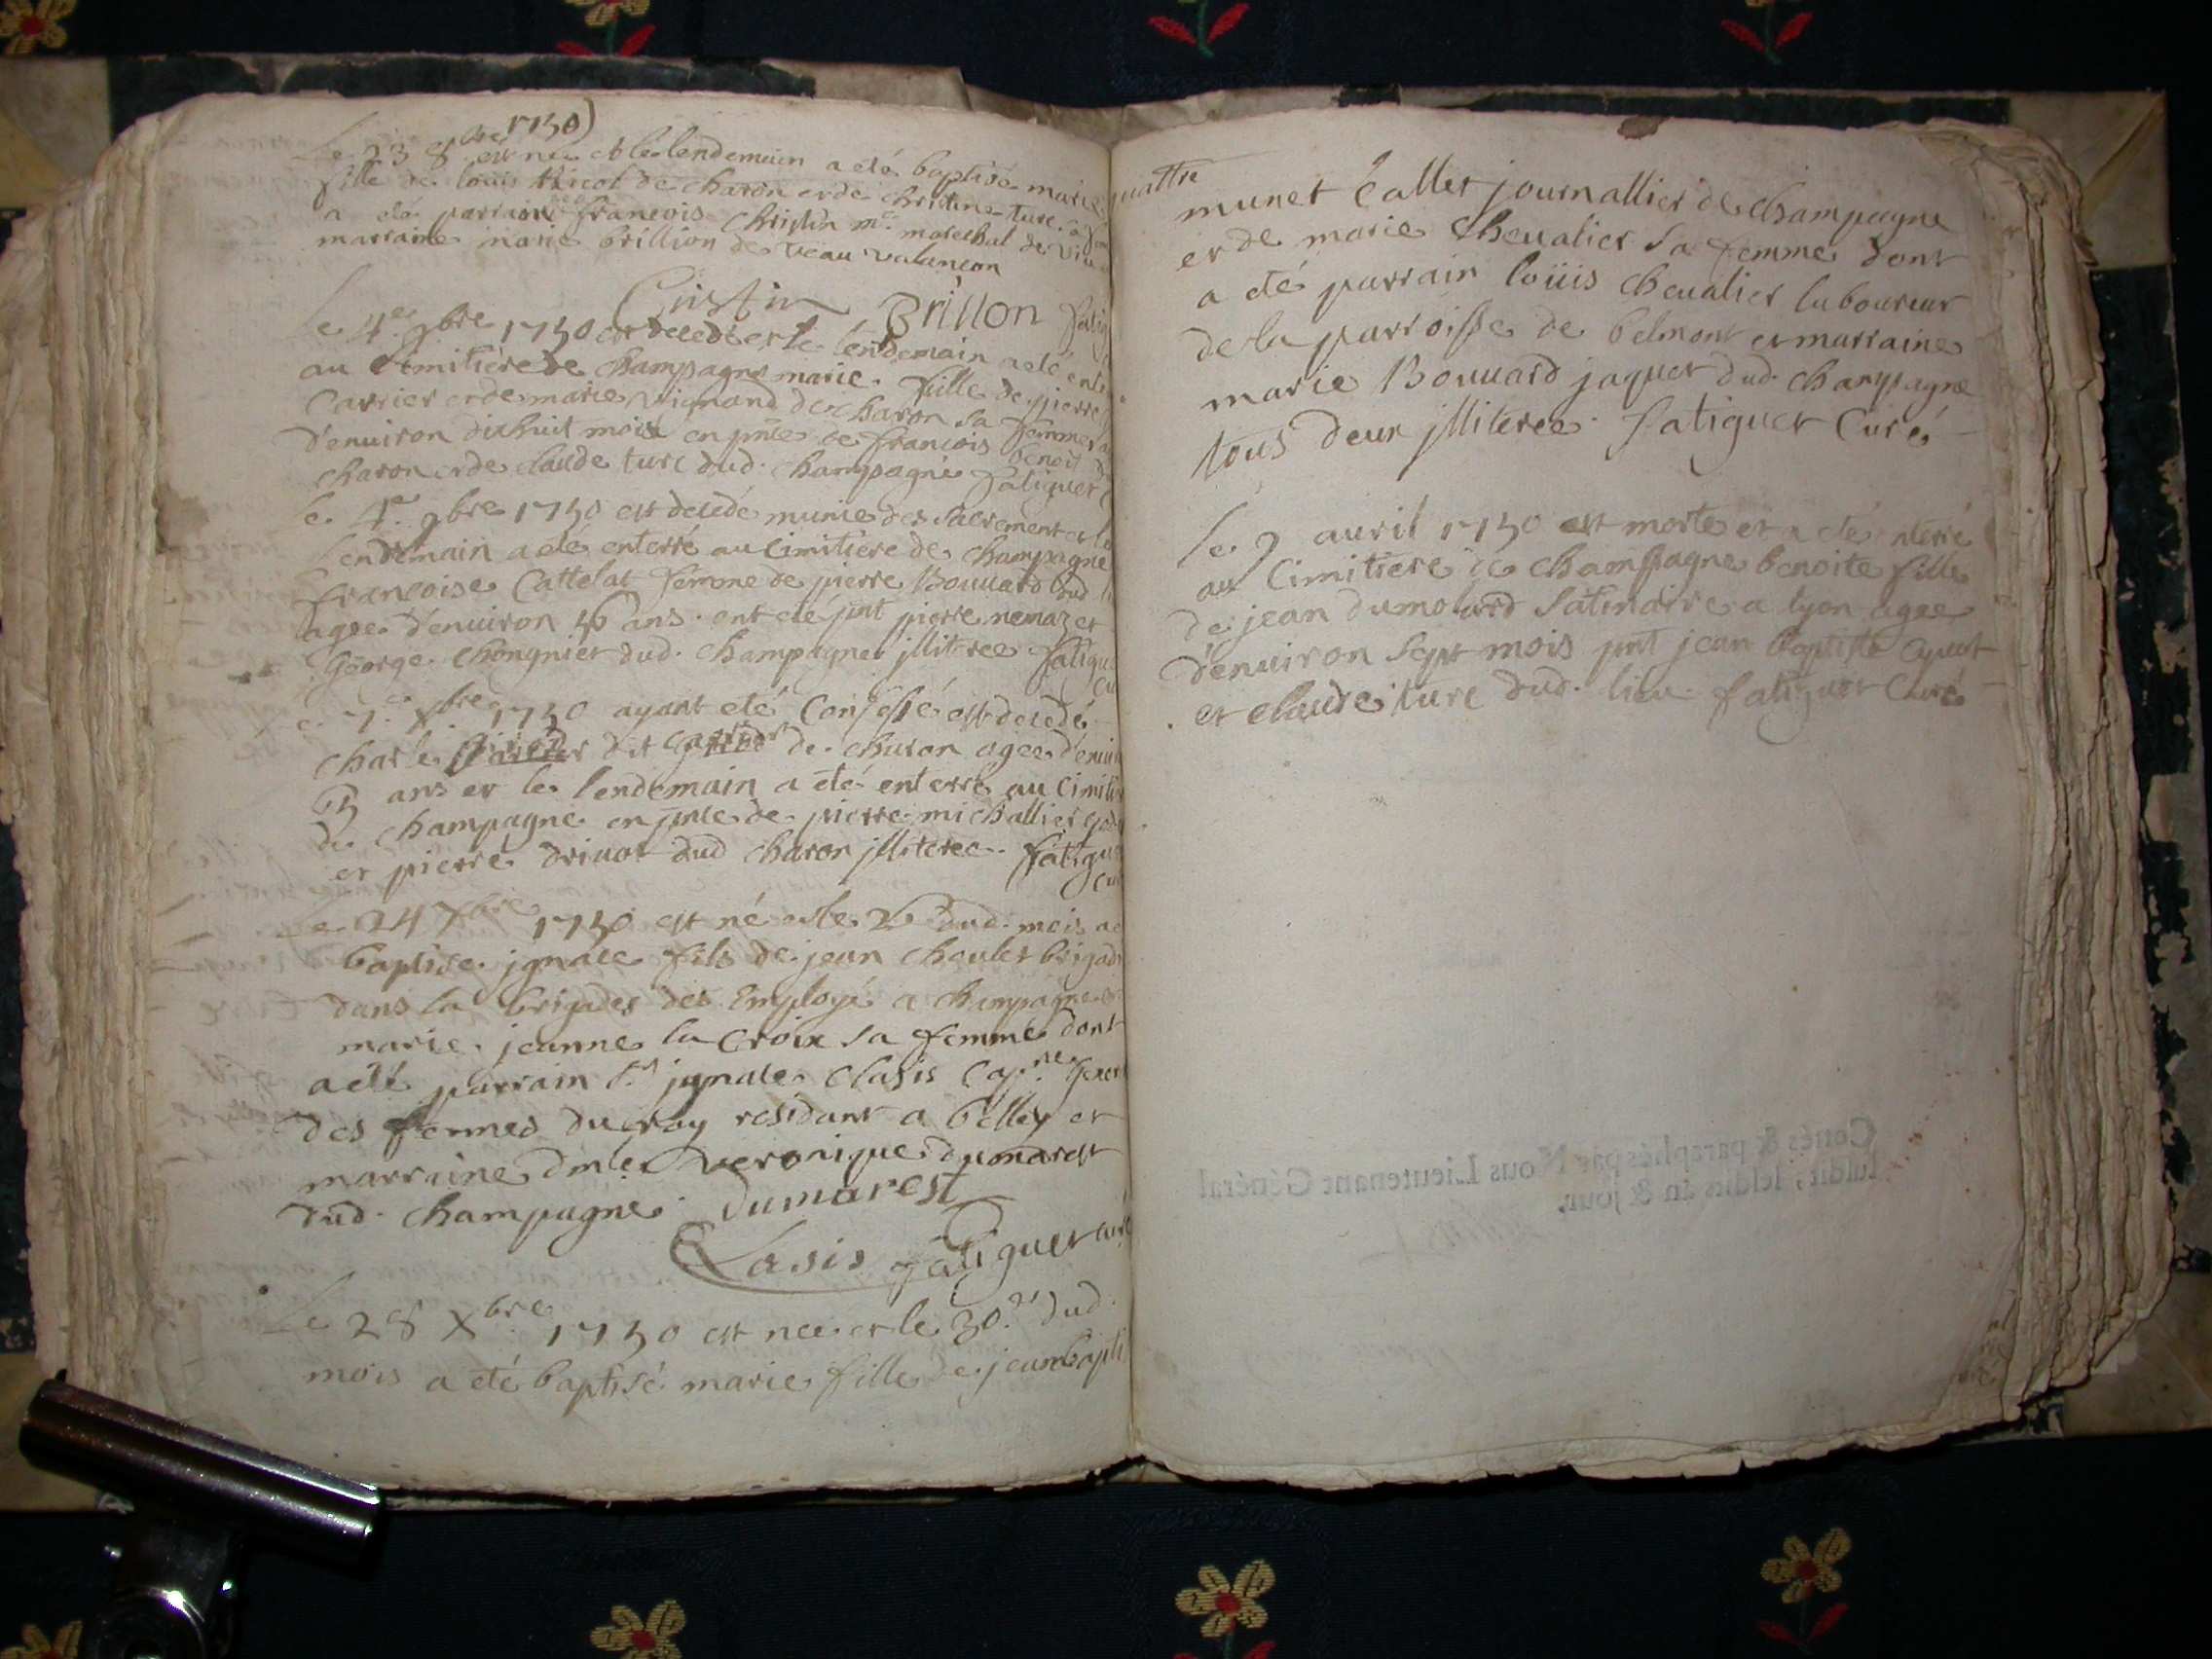 1750)
Le 23 8bre est née et le lendemain a eté baptisé marie
fille de louis Ricol de charon et de christine ture sa
a eté parrain francois christin me marechal de
marraine marie brillion de veau valancon
Cristin Brillon
Le 4e 9bre 1750 est decedé et le lendemain a eté
au Cimitiere de champagne marie fille de pierre
Carrier et de marie vignand de charon sa femme
d'enuiron dixhuit mois en pnce de francois benoit
charon et de claude ture dud. champagne fatiguet
le 4e 9bre 1750 est decedé munie des sacrement et le
lendemain a eté enterré au Cimitiere de champagne
francoise Cattelat femme de pierre Bouuard dud
agee d'enuiron ans. ont eté pnt pierre nemaz et
George chongniet dud. champagne jlliteree
7e Xbre 1750 ayant eté Confessé est decedé
charle dit de charon agee
ans et le lendemain a eté enterré au
de champagne en pnce de pierre michallier
et pierre driuot dud charon jlliteree.
Le 24 Xbre 1750 est né et le dud. mois
baptise. jgnace fils de jean cheulet
dans la brigades des Employé a champagne
marie. jeanne la Croix sa femme dont
a eté parrain sr jgnace Clasis Capne
des fermes du roy residant a belley et
marraine dmle veronique dumarest
dud. champagne. Dumarest
Clasis fatiguet curé
Le 28 Xbre 1750 est nee et le 30e dud.
mois a eté baptisé marie fille de jean
quattre
munet Callet journallier de champagne
et de marie cheualier sa femme dont
a eté parrain loüis cheualier laboureur
de la parroisse de belmont et marraine
marie Bouuard jaquet dud. champagne
tous deux jlliteree. fatiguet Curé
le 9 auril 1750 est morte et a eté enterré
au Cimitiere de champagne benoite fille
de jean dumolard satinaire a lyon agee
d'enuiron sept mois pnt jean baptiste
et claude ture dud. lieu fatiguet Curé
Cottés & paraphés par Nous Lieutenant Général
susdit, lesdits an & jour.